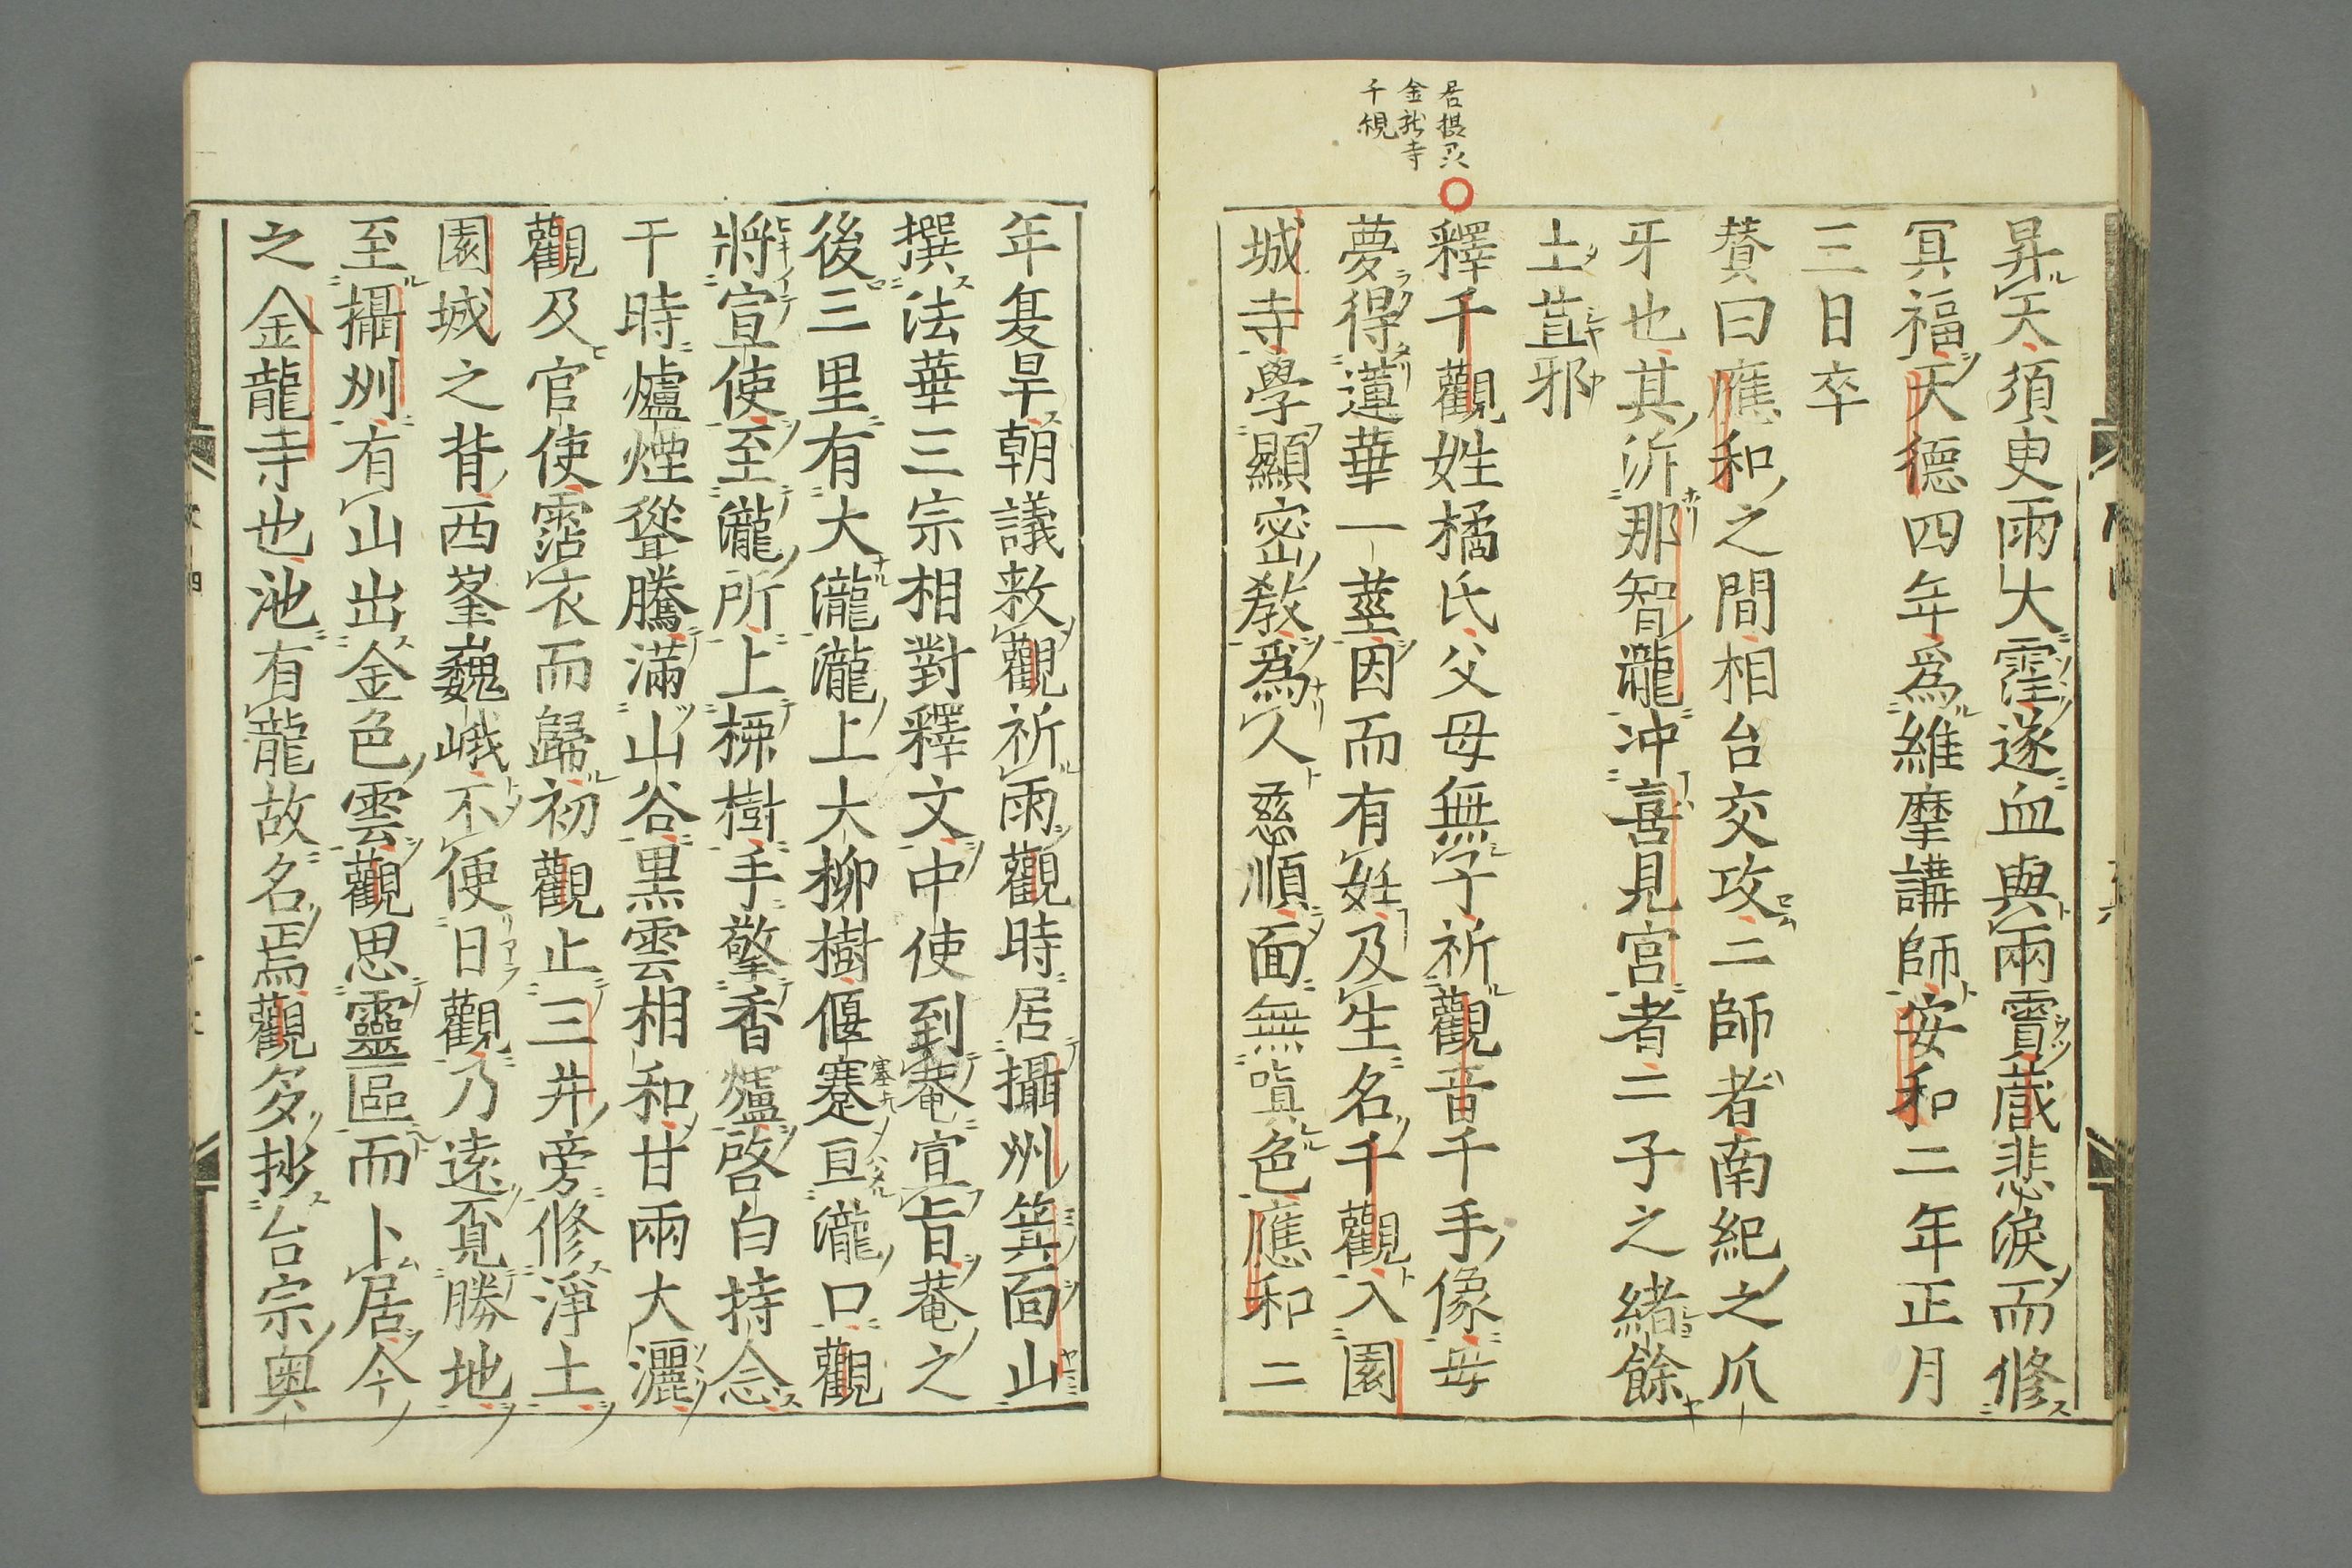 居摂刕
金龍寺
千観
昇天須臾雨大霔遂血與兩霣蔵悲淚而修
冥福天德四年爲維摩講師安和二年正月
三日卒
賛曰應和之間相台交攻二師者南紀之爪
牙也其泝那智瀧冲喜見宮者二子之緒餘
土苴邪
釋千觀姓橘氏父母無子祈觀音千手像母
夢得蓮華一莖因而有姙及生名千觀入園
城寺學顯密教爲人慈順面無嗔色應和二
年夏旱朝議敕觀祈雨觀時居攝州箕面山
撰法華三宗相對釋文中使到菴宣旨菴之
後三里有大瀧瀧上大柳樹偃蹇亘瀧口觀
將宣使至瀧所上柳樹手擎香爐啓白持念
于時爐煙聳騰滿山谷黒雲相和甘雨大灑
觀及官使霑衣而歸初觀止三井旁修淨土
園城之背西峯巍峨不便日觀乃遠覔勝地
至攝州有山出金色雲觀思靈區而卜居今
之金龍寺也池有龍故名焉觀多抄台宗奥